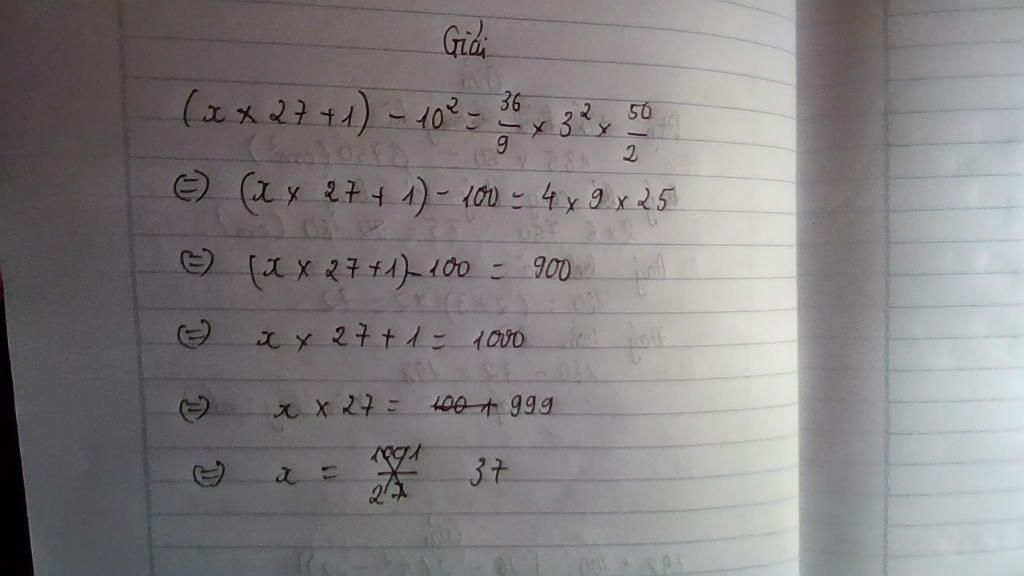 Giải
(x × 27 + 1) - 10² = 36/9 × 3² × 50/2
⇔ (x × 27 + 1) - 100 = 4 × 9 × 25
⇔ (x × 27 + 1) - 100 = 900
⇔ x × 27 + 1 = 1000
⇔ x × 27 = 999
⇔ x = 37